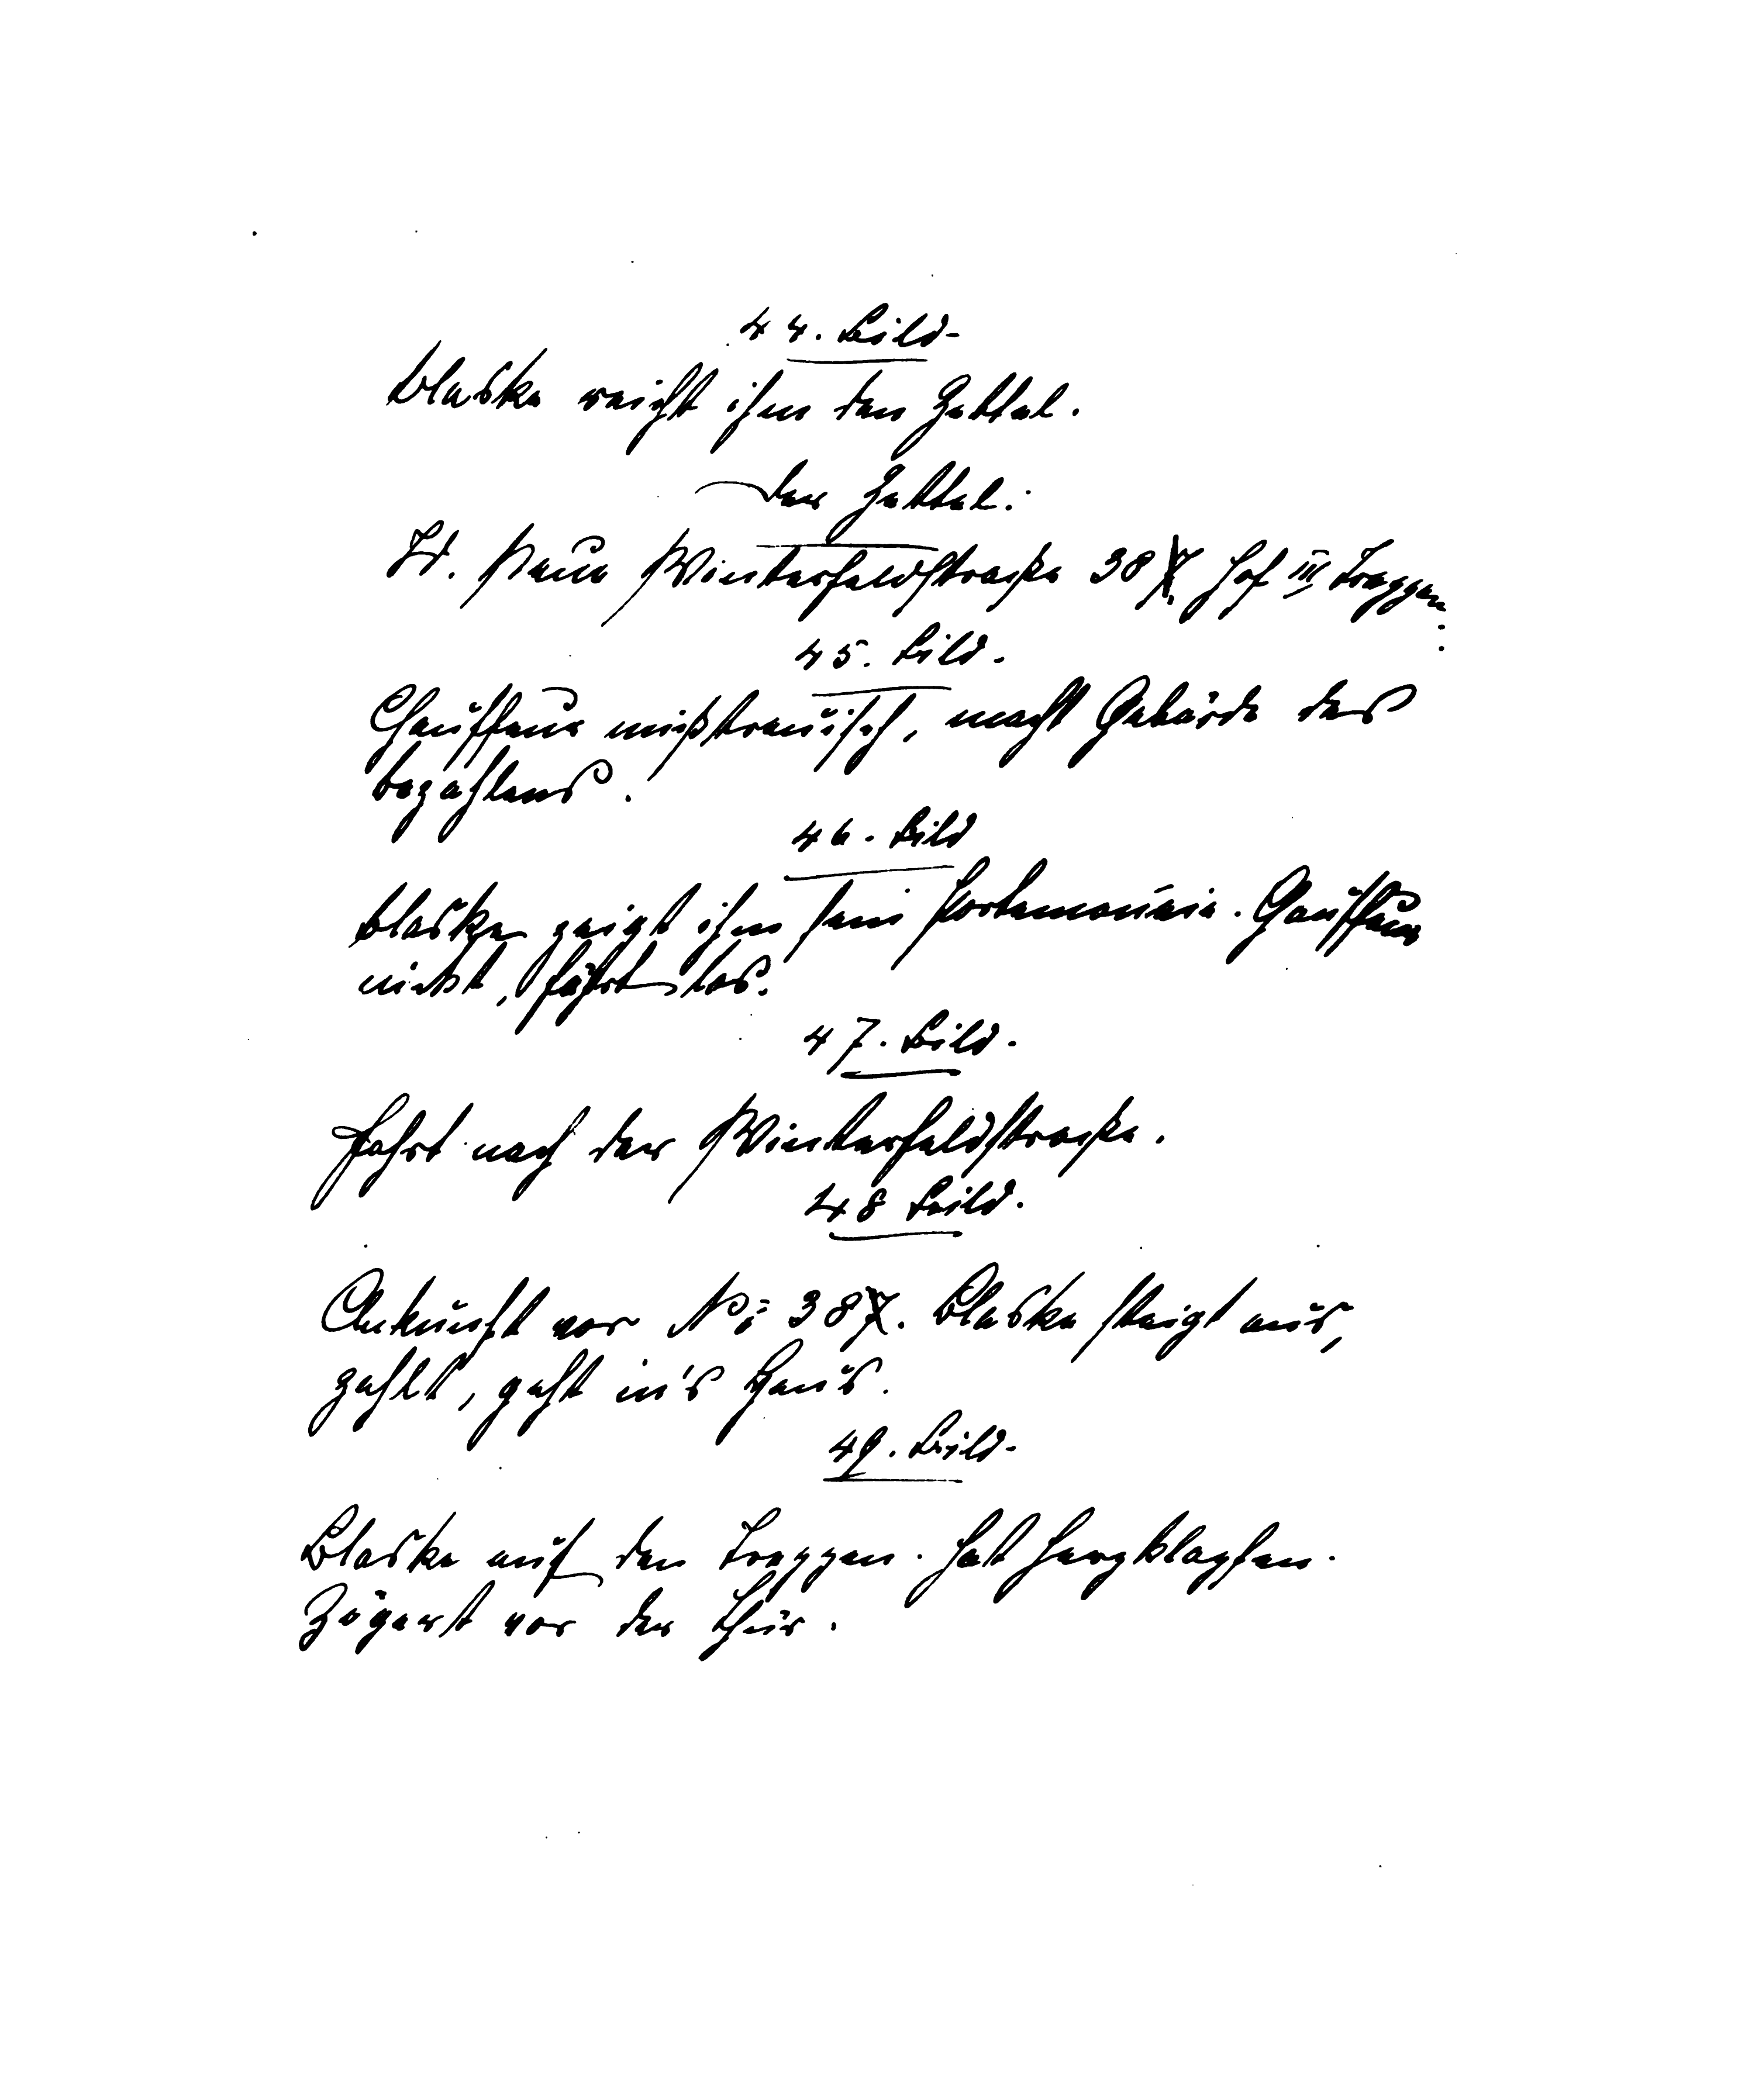 44. Bild.
Blaske reicht ihm den Zettel.
Der Zettel:
St. Paul Winterfeldstraße 387. Hof III Treppen
45. Bild.
Chauffeur mißtrauisch, macht Gebärde des
bezahlens.
46. Bild
Blaske zeigt ihm sein Portemonaie. Chauffeur
nickt, fährt los.
47. Bild.
Fahrt nach der Winterfeldstraße.
48 Bild.
Ankunft vor No: 387. Blaske steigt aus,
zahlt, geht in's Haus.
49. Bild.
Blaske auf den Treppen. Hat Herzklopfen.
Zögert vor der Thür.